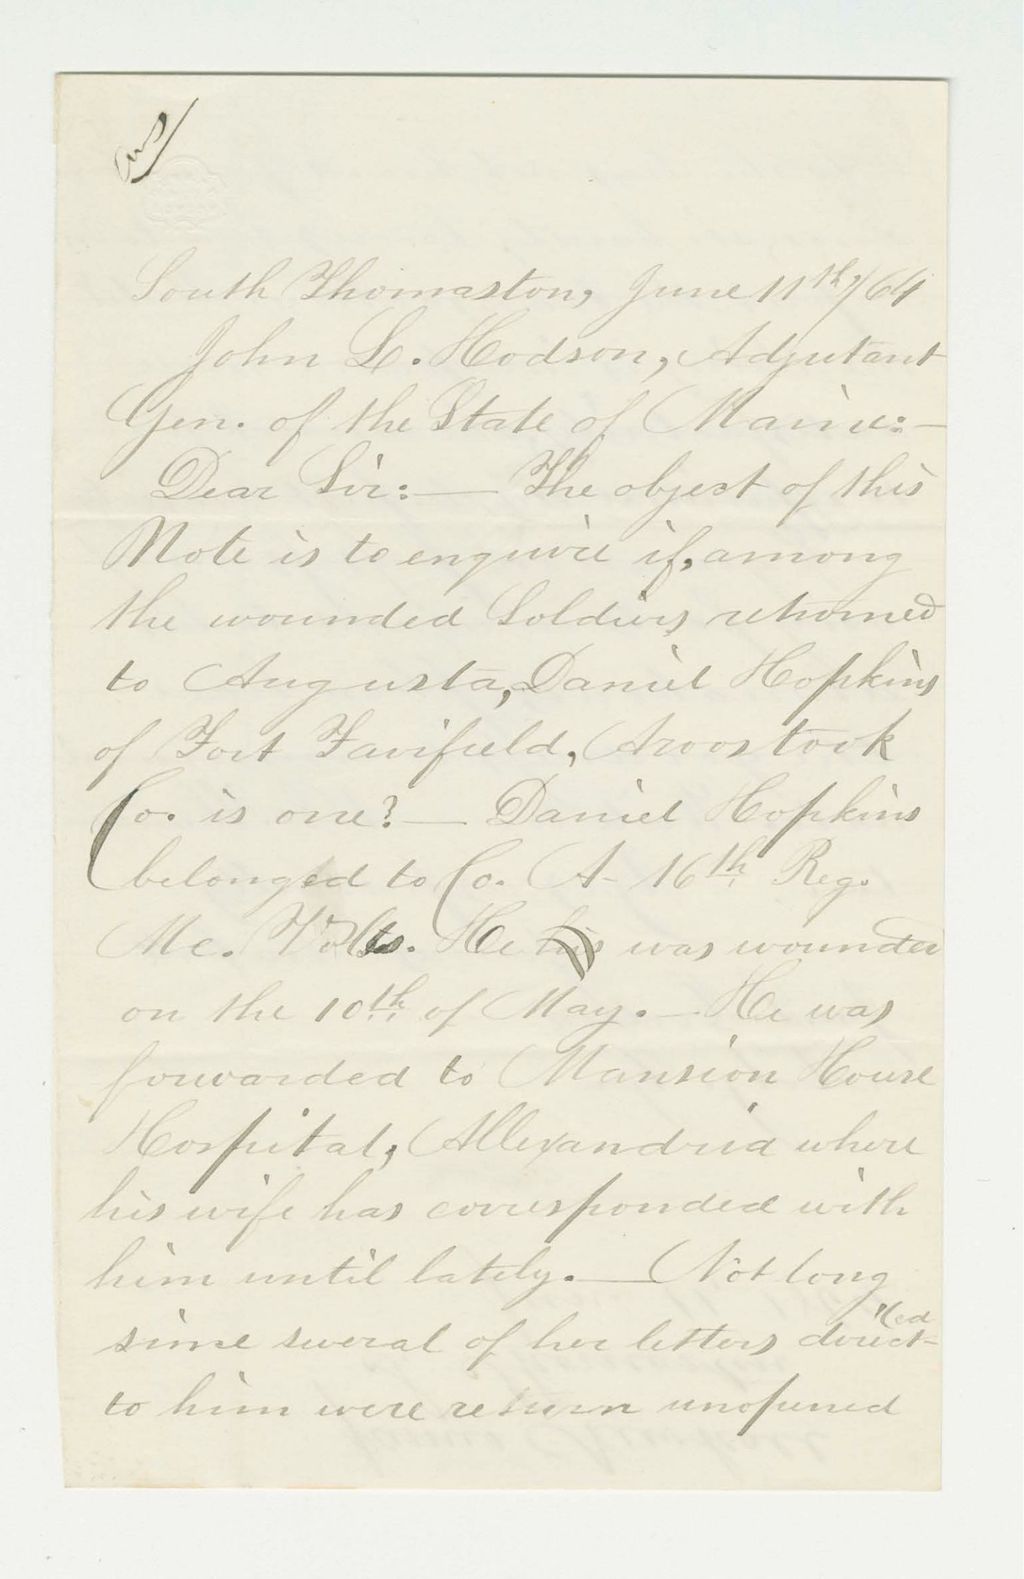 Ans
South Thomaston, June 11th, /64
John L. Hodson, Adjutant
Gen. of the State of Maine:—
Dear Sir:— The object of this
Note is to enquire if, among
the wounded Soldiers returned
to Augusta, Daniel Hopkins
of Fort Fairfield, Aroostook
Co. is one?— Daniel Hopkins
belonged to Co. A- 16th Reg.
Me. Volts. He his was wounded
on the 10th of May.— He was
forwarded to Mansion House
Hospital, Allexandria where
his wife has corresponded with
him until lately.— Not long
since several of her letters directed
to him were return unopened